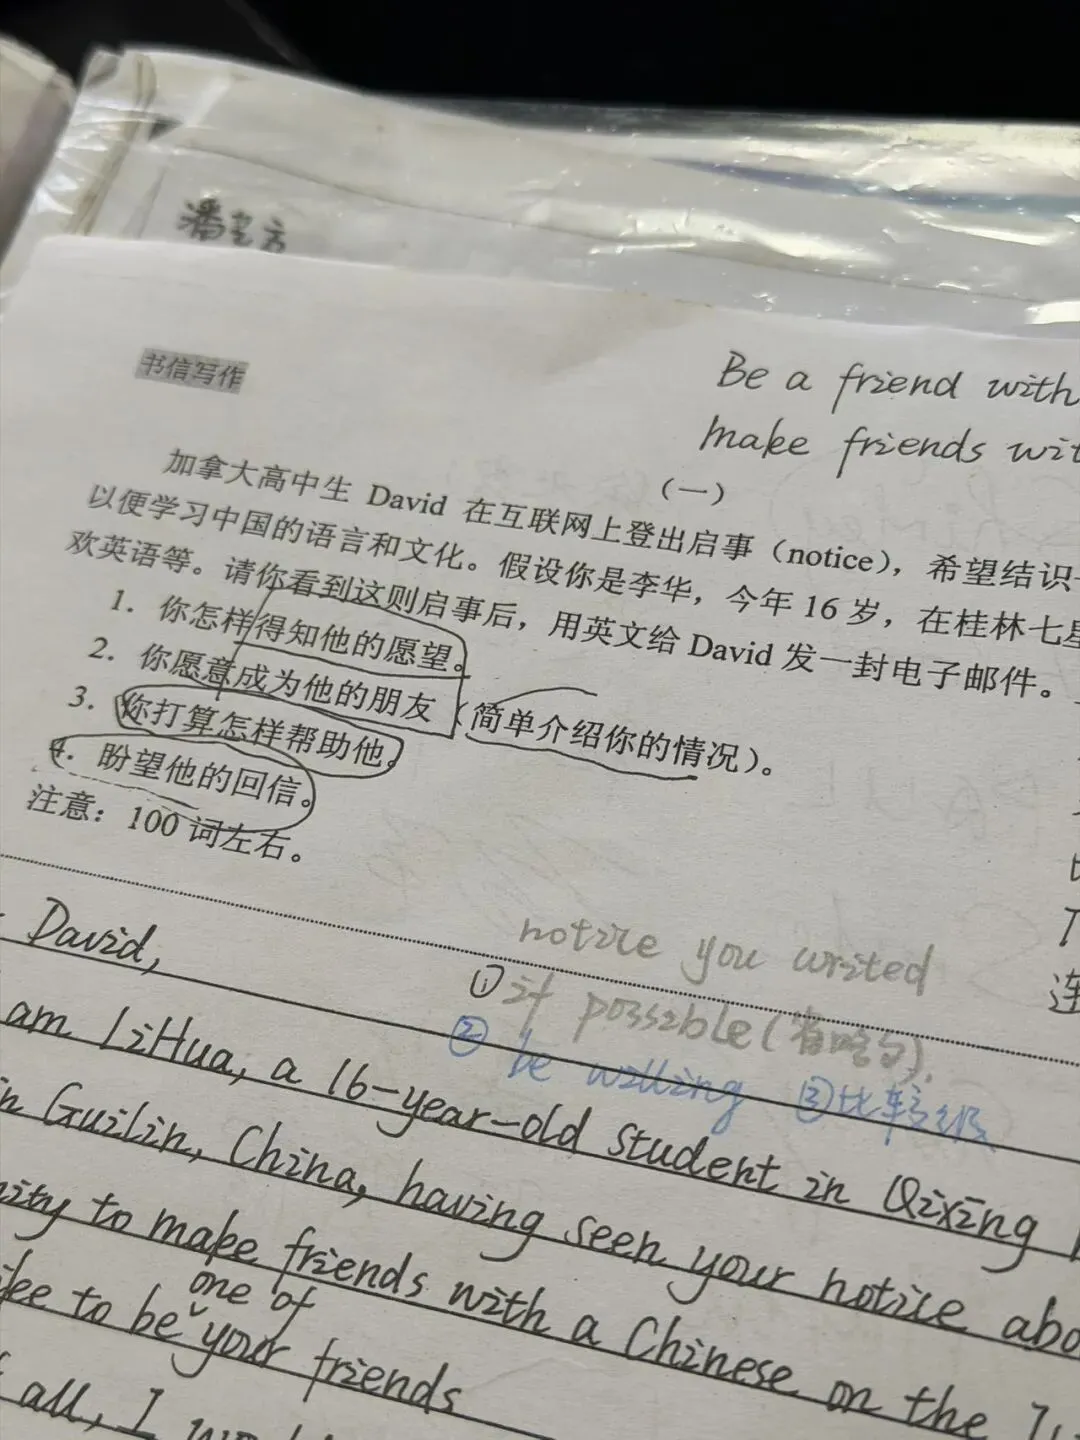 书信写作
Be a friend with
make friends wit
（一）
加拿大高中生 David 在互联网上登出启事（notice），希望结识
以便学习中国的语言和文化。假设你是李华，今年 16 岁，在桂林七星
欢英语等。请你看到这则启事后，用英文给 David 发一封电子邮件。
1. 你怎样得知他的愿望。
2. 你愿意成为他的朋友（简单介绍你的情况）。
3. 你打算怎样帮助他。
4. 盼望他的回信。
注意：100 词左右。
notice you writed
① if possible（省略句）.
② be willing ③比较级
David,
am LiHua, a 16-year-old student in Qixing
in Guilin, China, having seen your notice abo
nity to make friends with a Chinese on the
ike to be one of your friends
all, I
连